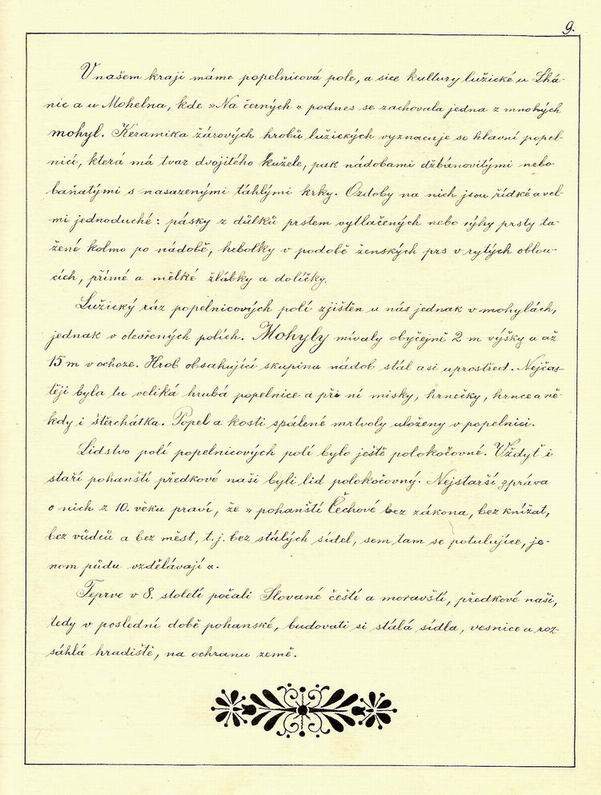 9.
V našem kraji máme popelnicová pole, a sice kultury lužické u Lhá-
nic a u Mohelna, kde »Na černých« podnes se zachovala jedna z mnohých
mohyl. Keramika žárových hrobů lužických vyznačuje se hlavní popel-
nicí, která má tvar dvojitého kužele, pak nádobami džbánovitými nebo
baňatými s nasazenými táhlými krky. Ozdoby na nich jsou řídké a vel-
mi jednoduché: pásky z důlků prstem vytlačených nebo rýhy prsty ta-
žené kolmo po nádobě, hrbolky v podobě ženských prs v rytých oblou-
cích, přímé a mělké žlábky a dolíčky.
Lužický ráz popelnicových polí zjištěn u nás jednak v mohylách,
jednak v otevřených polích. Mohyly mívaly obyčejně 2 m výšky a až
15 m v obvoze. Hrob obsahující skupinu nádob stál asi uprostřed. Nejčas-
těji byla tu veliká hrubá popelnice a při ní misky, hrnečky, hrnce a ně-
kdy i šterchátka. Popel a kosti spálené mrtvoly uloženy v popelnici.
Lidstvo polí popelnicových polí bylo ještě polokočovné. Vždyť i
staří pohanští předkové naši byli lid polokočovný. Nejstarší zpráva
o nich z 10. věku praví, že »pohanští Čechové bez zákona, bez knížat,
bez vůdců a bez měst, t.j. bez stálých sídel, sem tam se potulujíce, je-
nom půdu vzdělávají«.
Teprve v 8. století počali Slované čeští a moravští, předkové naši,
tedy v poslední době pohanské, budovati si stálá sídla, vesnice a roz-
sáhlá hradiště, na ochranu země.